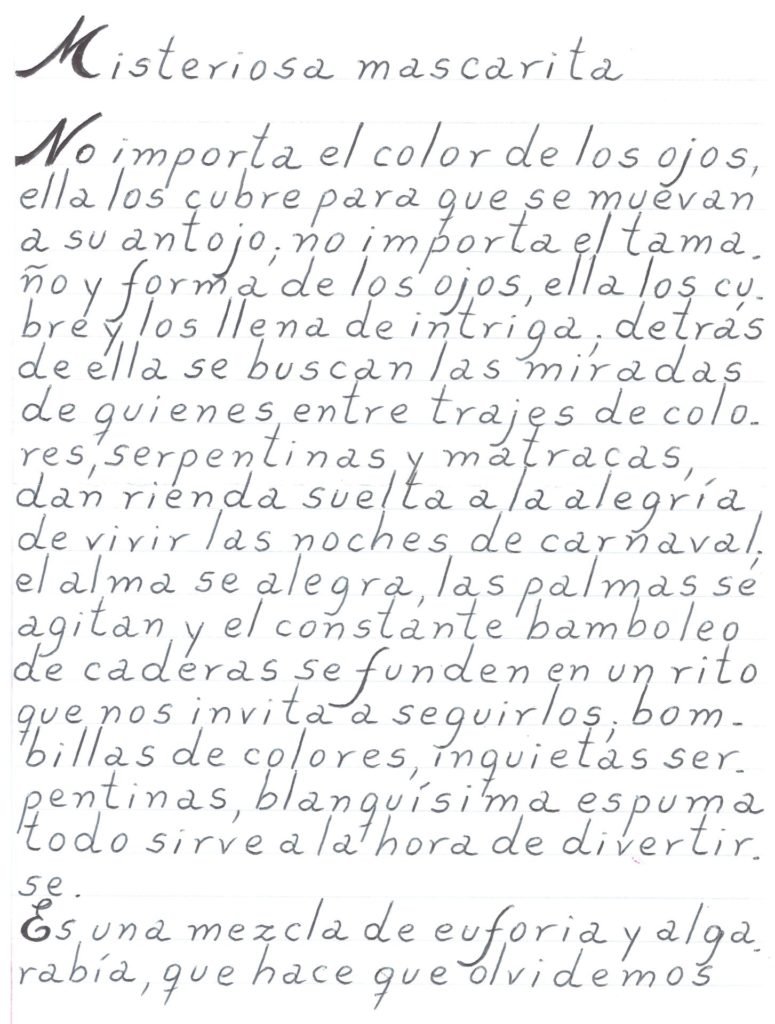 Misteriosa mascarita
No importa el color de los ojos,
ella los cubre para que se muevan
a su antojo; no importa el tama-
ño y forma de los ojos, ella los cu-
bre y los llena de intriga; detrás
de ella se buscan las miradas
de quienes entre trajes de colo-
res, serpentinas y matracas,
dan rienda suelta a la alegría
de vivir las noches de carnaval;
el alma se alegra, las palmas se
agitan y el constante bamboleo
de caderas se funden en un rito
que nos invita a seguirlos; bom-
billas de colores, inquietas ser-
pentinas, blanquísima espuma
todo sirve a la hora de divertir-
se.
Es una mezcla de euforia y alga-
rabía, que hace que olvidemos